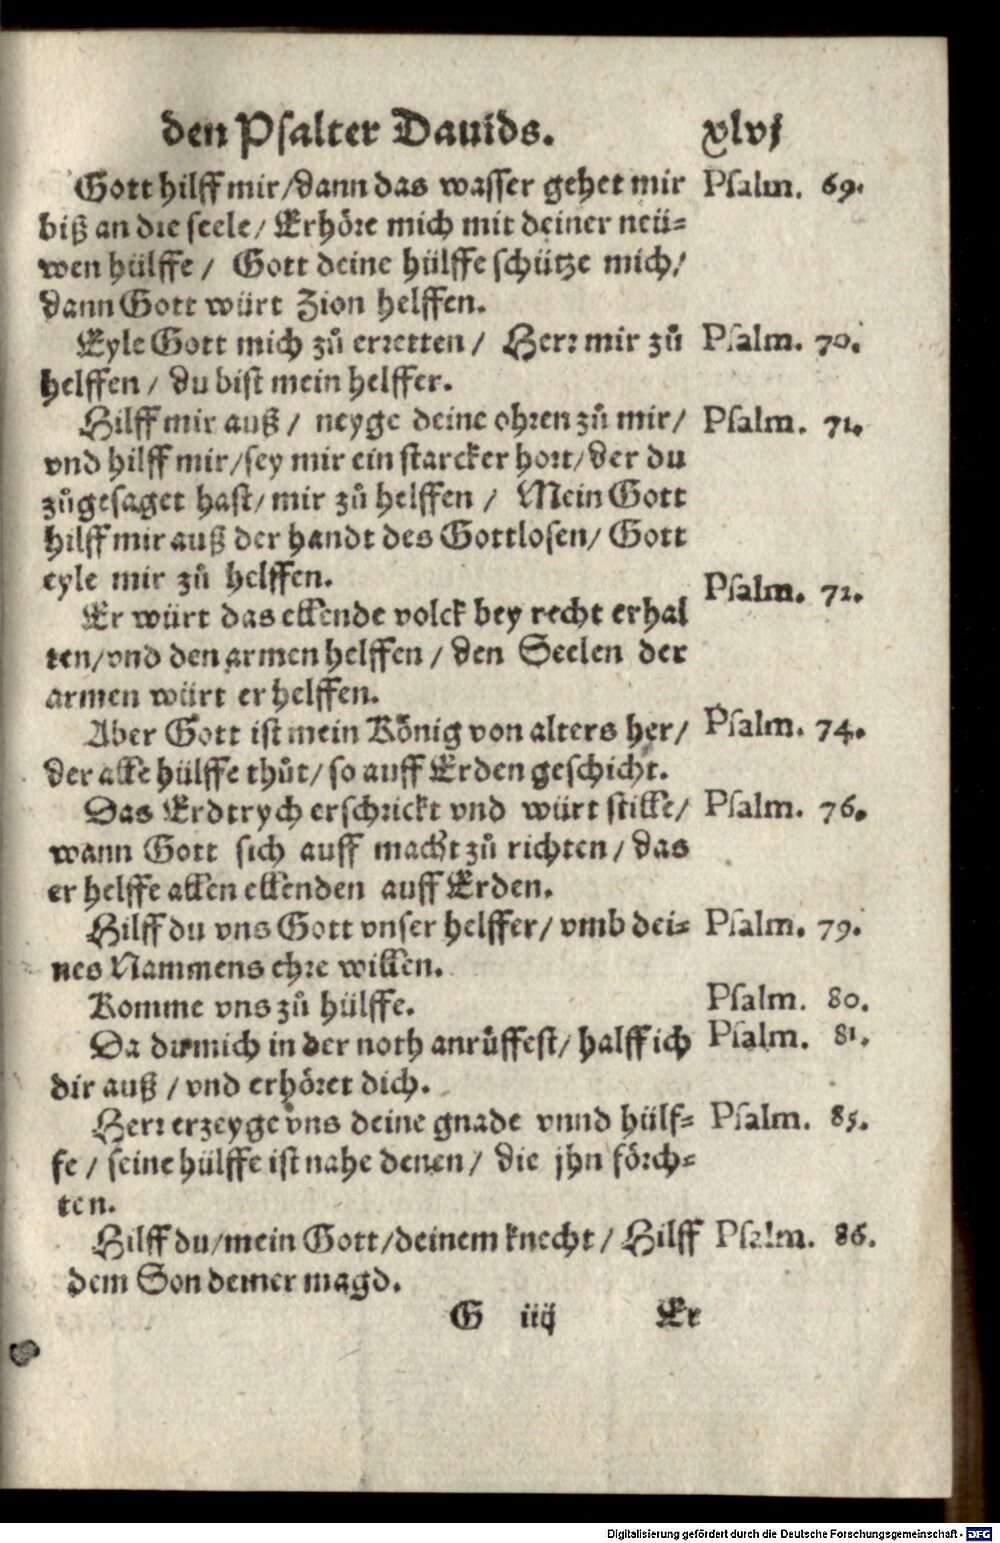 den Psalter Dauids. xlvj
Gott hilff mir/dann das wasser gehet mir Psalm. 69.
biß an die seele/ Erhöre mich mit deiner neü-
wen hülffe/ Gott deine hülffe schütze mich/
dann Gott würt Zion helffen.
Eyle Gott mich zů erretten/ Herr mir zů Psalm. 70.
helffen/ du bist mein helffer.
Hilff mir auß/ neyge deine ohren zů mir/ Psalm. 71.
vnd hilff mir/sey mir ein starcker hort/der du
zůgesaget hast/mir zů helffen/ Mein Gott
hilff mir auß der handt des Gottlosen/ Gott
eyle mir zů helffen.
Er würt das ellende volck bey recht erhal Psalm. 72.
ten/vnd den armen helffen/ den Seelen der
armen würt er helffen.
Aber Gott ist mein König von alters her/ Psalm. 74.
der alle hülffe thůt/so auff Erden geschicht.
Das Erdtrych erschrickt vnd würt stille/ Psalm. 76.
wann Gott sich auff macht zů richten/ das
er helffe allen ellenden auff Erden.
Hilff du vns Gott vnser helffer/ vmb dei- Psalm. 79.
nes Nammens ehre willen.
Komme vns zů hülffe. Psalm. 80.
Da du mich in der noth anrůffest/ halff ich Psalm. 81.
dir auß/vnd erhöret dich.
Herr erzeyge vns deine gnade vnnd hülf- Psalm. 85.
fe/ seine hülffe ist nahe denen/ die jhn förch-
ten.
Hilff du/mein Gott/deinem knecht/ Hilff Psalm. 86.
dem Son deiner magd.
G iiij Er
Digitalisierung gefördert durch die Deutsche Forschungsgemeinschaft - DFG